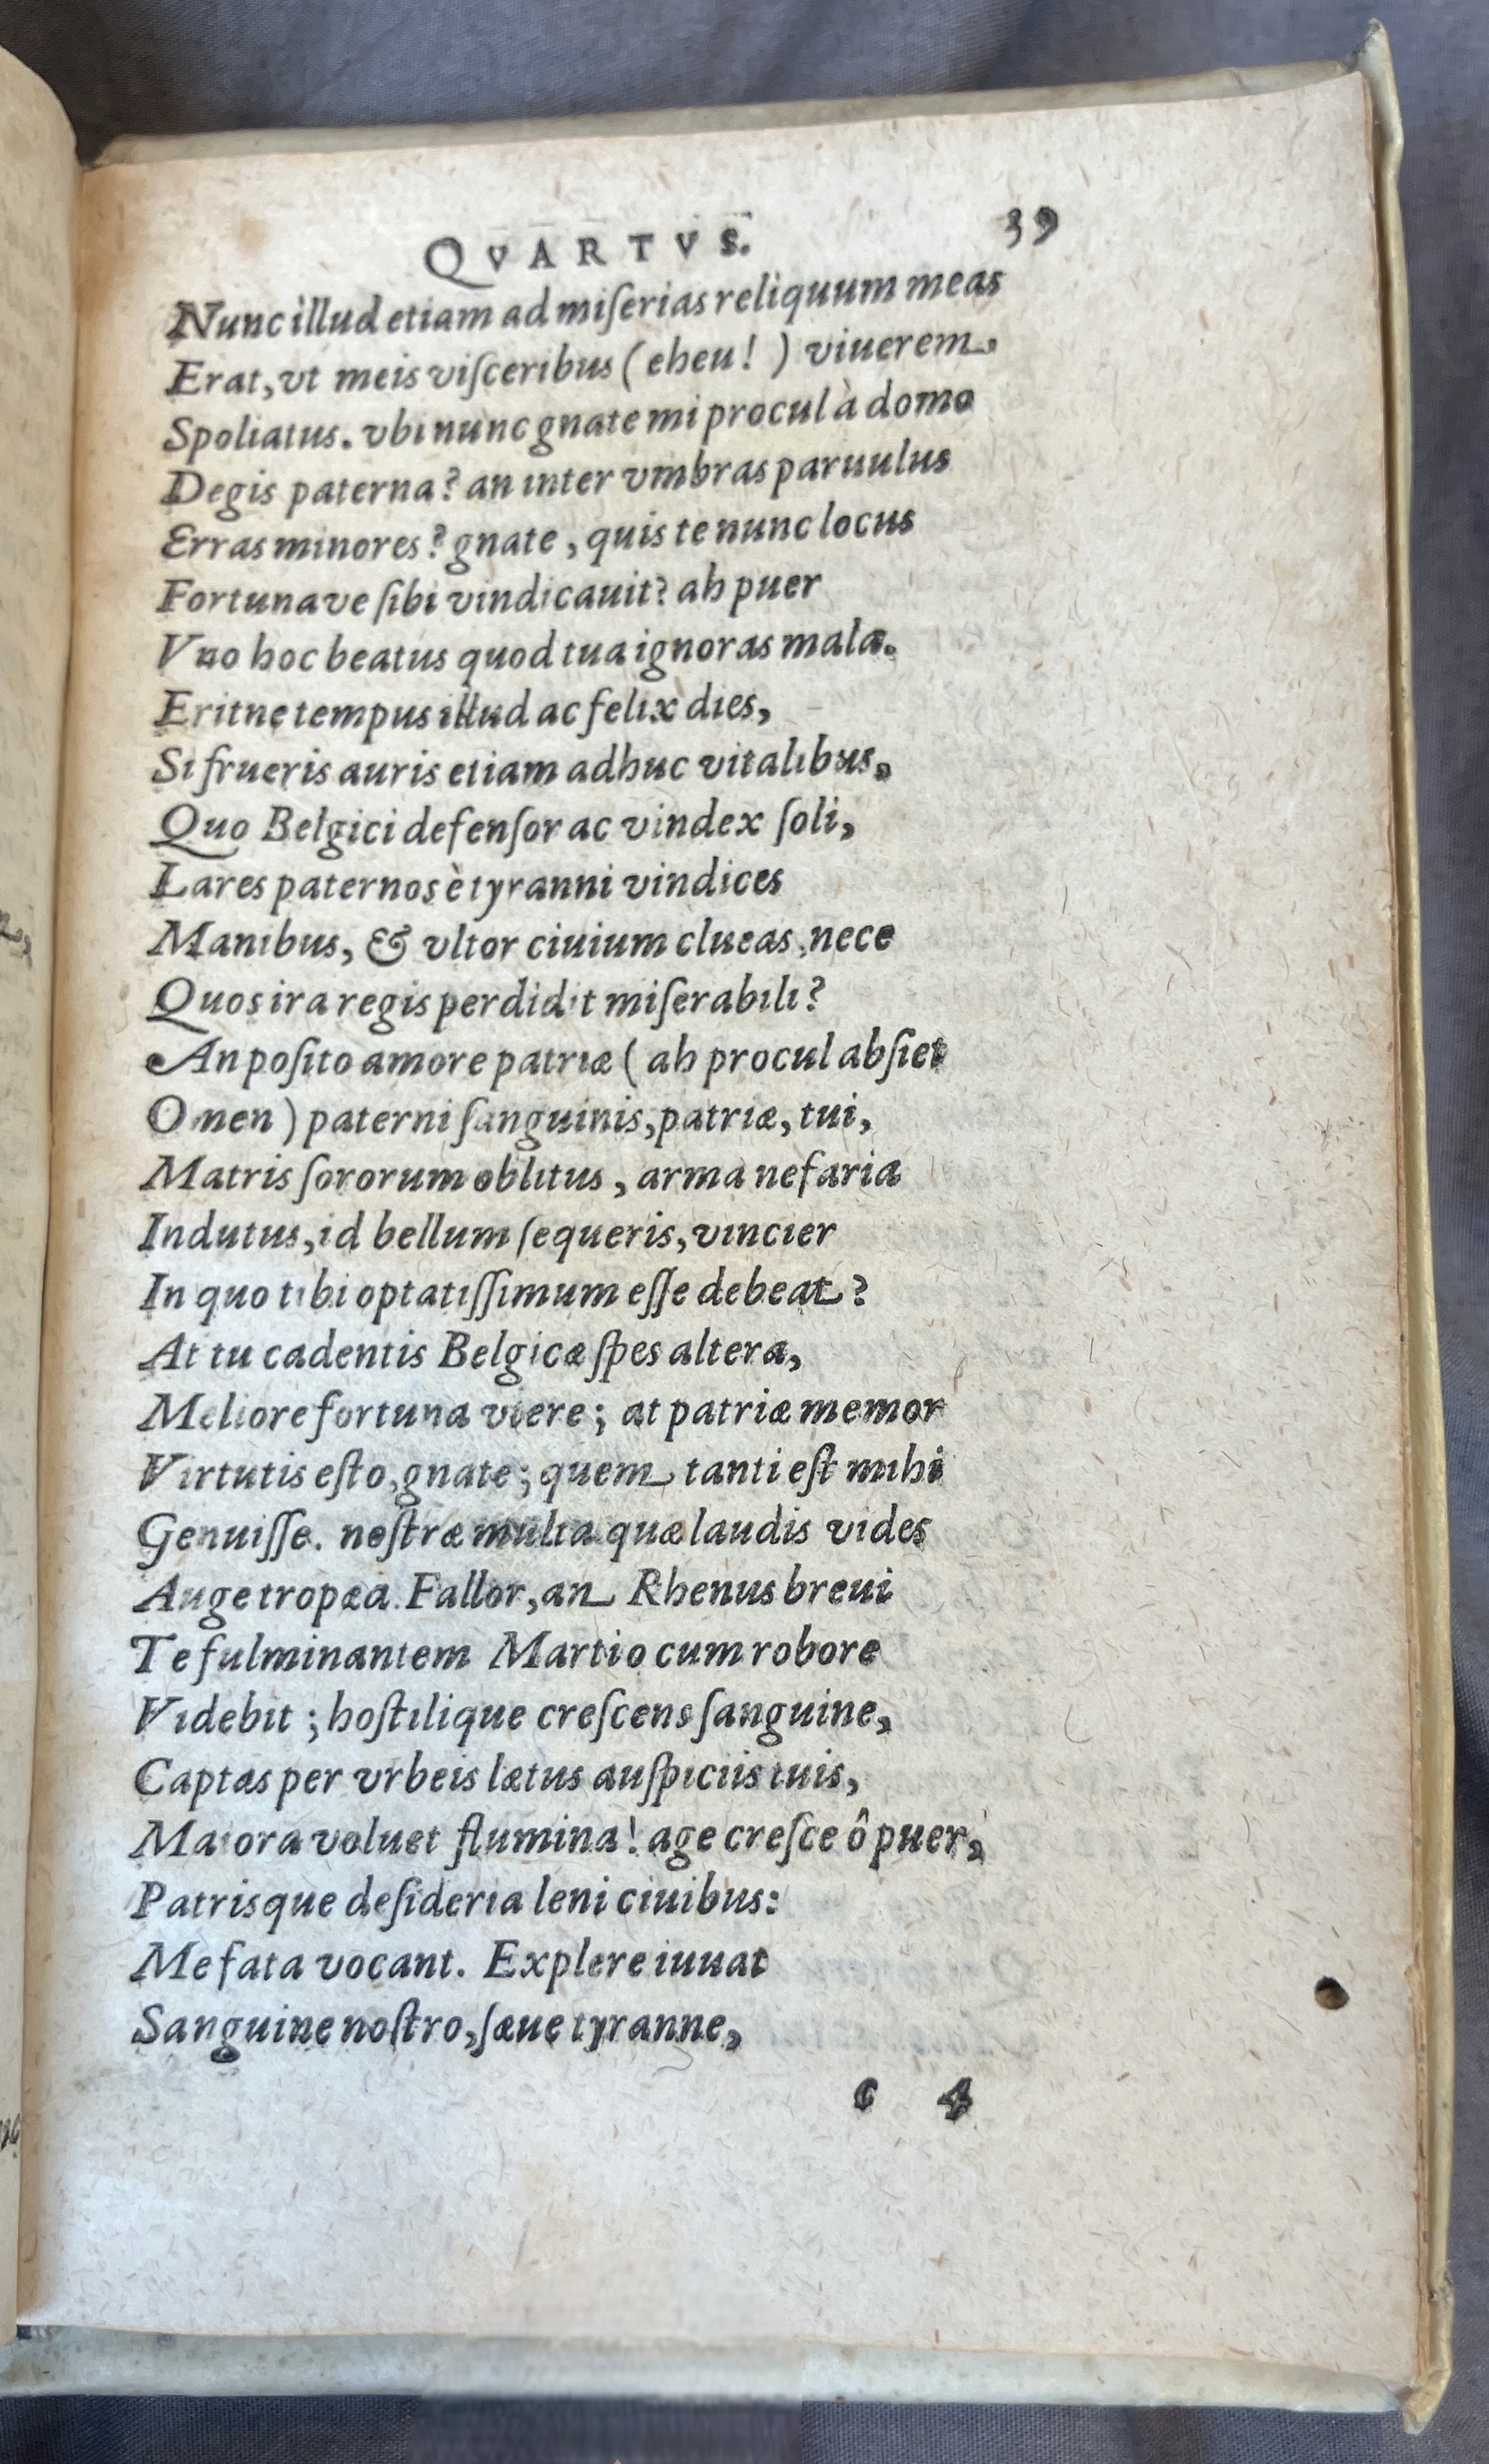 QVARTVS. 39
Nunc illud etiam ad miſerias reliquum meas
Erat, vt meis viſceribus (eheu! ) viuerem,
Spoliatus. vbi nunc gnate mi procul à domo
Degis paterna? an inter vmbras paruulus
Erras minores? gnate, quis te nunc locus
Fortunave ſibi vindicauit? ah puer
Vno hoc beatus quod tua ignoras mala.
Eritne tempus illud ac felix dies,
Si frueris auris etiam adhuc vitalibus,
Quo Belgici defenſor ac vindex ſoli,
Lares paternos è tyranni vindices
Manibus, & vltor ciuium clueas, nece
Quos ira regis perdidit miſerabili?
An poſito amore patriæ ( ah procul abſiet
Omen ) paterni ſanguinis, patriæ, tui,
Matris ſororum oblitus, arma nefaria
Indutus, id bellum ſequeris, vincier
In quo tibi optatiſſimum eſſe debeat?
At tu cadentis Belgicæ ſpes altera,
Meliore fortuna vtere; at patriæ memor
Virtutis eſto, gnate; quem tanti eſt mihi
Genuiſſe. noſtræ multa quæ laudis vides
Auge tropæa. Fallor, an Rhenus breui
Te fulminantem Martio cum robore
Videbit; hoſtilique creſcens ſanguine,
Captas per vrbeis lætus auſpiciis tuis,
Maiora voluet flumina! age creſce ô puer,
Patrisque deſideria leni ciuibus:
Me fata vocant. Explere iuuat
Sanguine noſtro, ſæue tyranne,
c 4